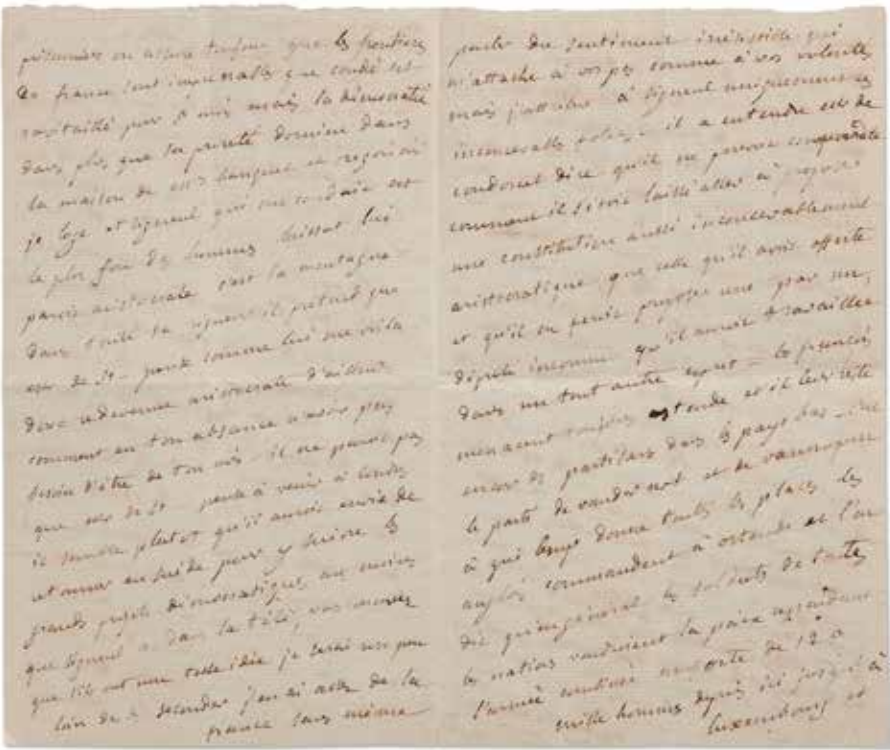 prisonniers on assure toujours que les frontières
de france sont imprenables que condé est
ravitaillé pour 6 mois mais la démocratie
dans plus que la pureté domine dans
la maison de ces banquiers et negocians
je loge et signeul qui me conduit est
le plus fou des hommes brissot lui
parait aristocrate c'est la montagne
dans toute sa il pretend que
est de st- pense comme lui me voila
donc redevenue aristocrate d'ailleurs
comment en ton absence n'avoir pas
besoin d'être de ton avis - il ne paroit pas
que de st- pense à venir à londres
il semble plutot qu'il auroit envie de
retourner en suède pour y suivre les
grands projets démocratiques au moins
que signeul a dans la tête, vous
que s'ils ont une telle idée je serai un peu
loin de les seconder j'en ai assez de la
france sans même
parler du sentiment irrésistible qui
m'attache à vos pas comme à vos volontés
mais j'attribue à signeul uniquement ces
inconcevables folies - il a entendu de
condorcet dire qu'il ne pouvoit comprendre
comment il s'étoit laissé aller à proposer
une constitution aussi inconcevablement
aristocratique que celle qu'il avoit offerte
et qu'il en feroit proposer une par un
député inconnu qu'il auroit travaillée
dans un tout autre esprit - les français
menacent toujours ostende et il leur reste
encor des partisans dans les pays bas -
le parti de vander noot et de vaneupen
à qui l'empr donne toutes les places les
anglois commandent à ostende et l'on
dit qu'en général les soldats de toutes
les nations voudroient la paix cependant
l'armée ennemie de 12
mille hommes depuis ici jusqu'à
luxembourg et